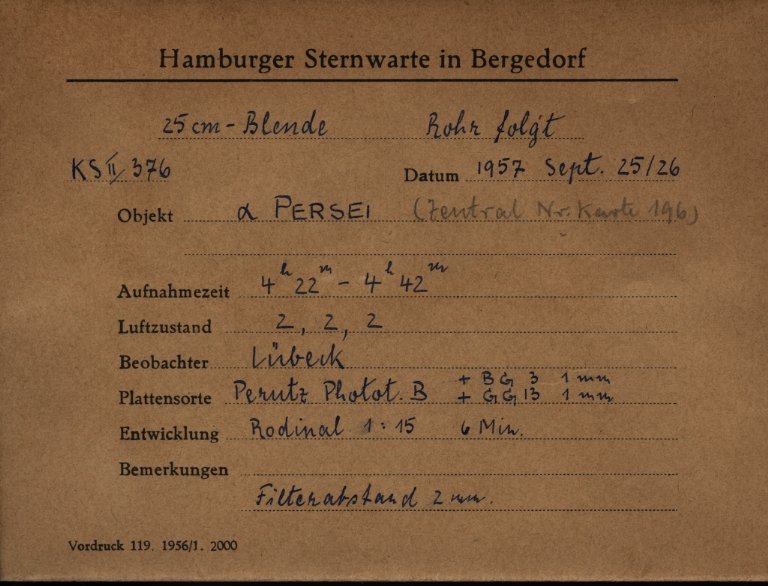 Hamburger Sternwarte in Bergedorf
25 cm - Blende Rohr folgt
KS II 376 Datum 1957 Sept. 25/26
Objekt α PERSEI (Zentral Nr. Karte 196)
Aufnahmezeit 4h 22m - 4h 42m
Luftzustand 2, 2, 2
Beobachter Lübeck
Plattensorte Perutz Photot. B + BG 3 1 mm
+ GG 13 1 mm
Entwicklung Rodinal 1 : 15 6 Min.
Bemerkungen
Filterabstand 2 mm.
Vordruck 119. 1956/1. 2000